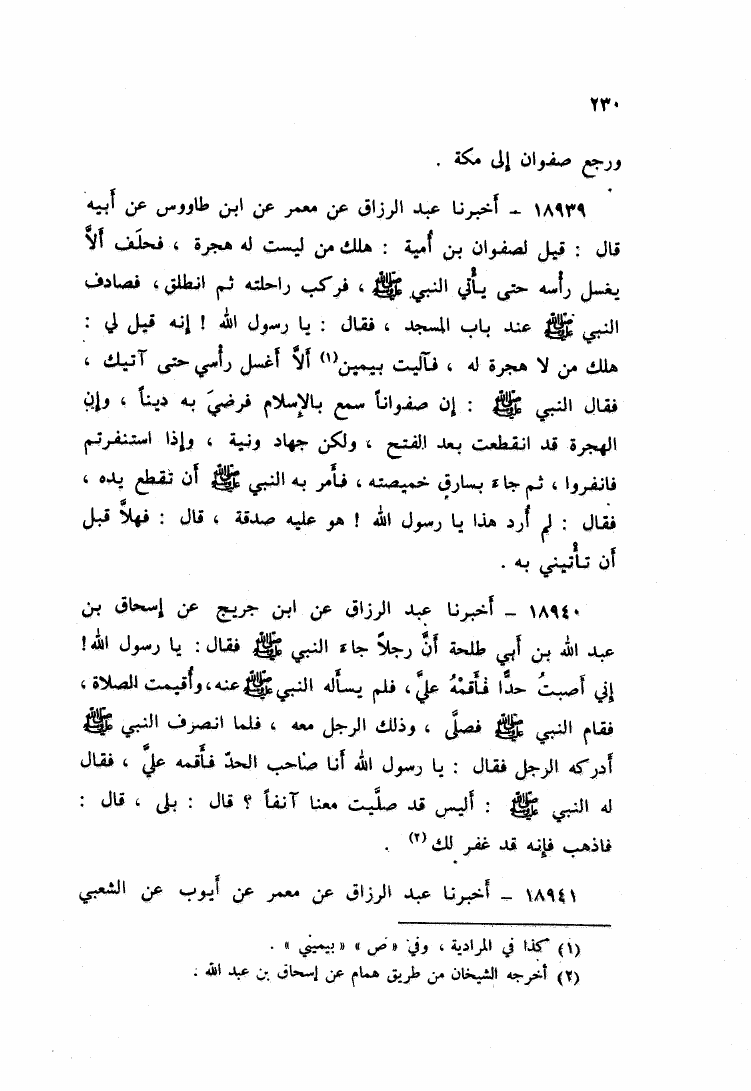 ٢٣٠
ورجع صفوان إلى مكة .
١٨٩٣٩ – أخبرنا عبد الرزاق عن معمر عن ابن طاووس عن أبيه
قال : قيل لصفوان بن أُمية : هلك من ليست له هجرة ، فحلَف أَلاَّ
يغسل رأْسه حتى يأْتي النبي ﷺ ، فركب راحلته ثم انطلق ، فصادف
النبي ﷺ عند باب المسجد ، فقال : يا رسول الله ! إنه قيل لي :
هلك من لا هجرة له ، فآليت بيمين(١) أَلاَّ أَغسل رأْسي حتى آتيك ،
فقال النبي ﷺ : إن صفواناً سمع بالإسلام فرضيَ به ديناً ، وإن
الهجرة قد انقطعت بعد الفتح ، ولكن جهاد ونية ، وإذا استنفرتم
فانفروا ، ثم جاءَ بسارق خميصته ، فأَمر به النبي ﷺ أَن تُقطع يده ،
فقال : لم أُرد هذا يا رسول الله ! هو عليه صدقة ، قال : فهلاَّ قبل
أَن تأْتيني به .
١٨٩٤٠ – أَخبرنا عبد الرزاق عن ابن جريج عن إسحاق بن
عبد الله بن أَبي طلحة أَنَّ رجلاً جاءَ النبي ﷺ فقال : يا رسول الله!
إني أَصبتُ حدًّا فأَقمْهُ عليَّ ، فلم يسأَله النبي ﷺ عنه، وأُقيمت الصلاة ،
فقام النبي ﷺ فصلَّى ، وذلك الرجل معه ، فلما انصرف النبي ﷺ
أَدركه الرجل فقال : يا رسول الله أَنا صاحب الحدّ فأَقمه عليَّ ، فقال
له النبي ﷺ : أَليس قد صلَّيت معنا آنفاً ؟ قال : بلى ، قال :
فاذهب فإنه قد غفر لك(٢) .
١٨٩٤١ – أَخبرنا عبد الرزاق عن معمر عن أَيوب عن الشعبي
(١) كذا في المرادية ، وفي «ص» «بيميني» .
(٢) أخرجه الشيخان من طريق همام عن إسحاق بن عبد الله .